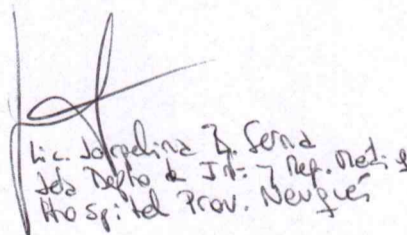 Lic. Jorgelina B. Serna
Jefa Depto de Inf. y Reg. Méd.
Hospital Prov. Neuquén